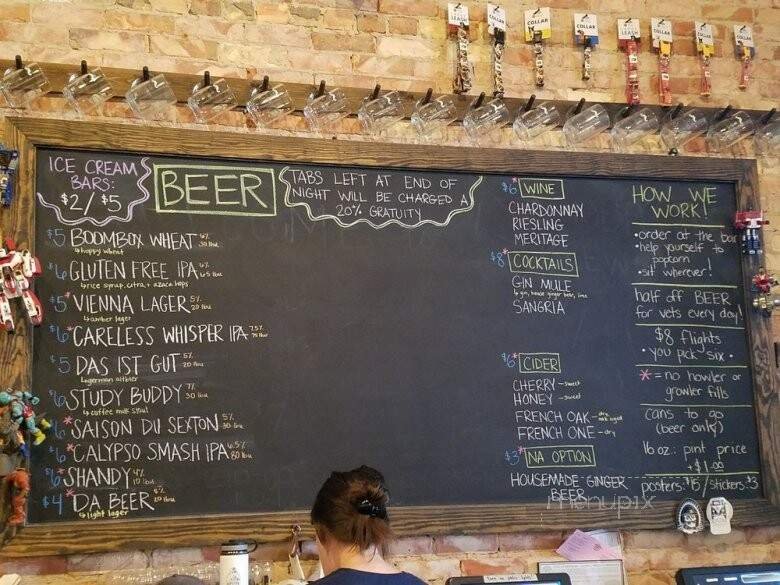 LEASH
COLLAR
COLLAR
COLLAR
LEASH
COLLAR
COLLAR
COLLAR
ICE CREAM
BARS:
$2/$5
BEER
TABS LEFT AT END OF
NIGHT WILL BE CHARGED A
20% GRATUITY
$5 BOOMBOX WHEAT
hoppy wheat
$6 GLUTEN FREE IPA
rice syrup, citra, + azaca hops
$5 *VIENNA LAGER 5%
20 ibu
amber lager
$6 *CARELESS WHISPER IPA 7.5%
$5 DAS IST GUT 5%
20 ibu
german altbier
$6 STUDY BUDDY 7%
30 ibu
coffee milk stout
$6 *SAISON DU SEXTON 5%
$6 *CALYPSO SMASH IPA 6.5%
80 ibu
$6 *SHANDY 4%
10 ibu
$4 *DA BEER
20 ibu
light lager
$6 * WINE
CHARDONNAY
RIESLING
MERITAGE
$8 * COCKTAILS
GIN MULE
gin, house ginger beer, lime
SANGRIA
$6 * CIDER
CHERRY -sweet
HONEY -sweet
FRENCH OAK -dry,
oak aged
FRENCH ONE -dry
$3 * NA OPTION
HOUSEMADE GINGER
BEER
HOW WE
WORK!
•order at the bar
•help yourself to
popcorn
•sit wherever!
half off BEER
for vets every day!
$8 flights
•you pick six•
* = no howler or
growler fills
cans to go
(beer only)
16 oz: pint price
+$1.00
posters: $15/stickers: $3
menupix